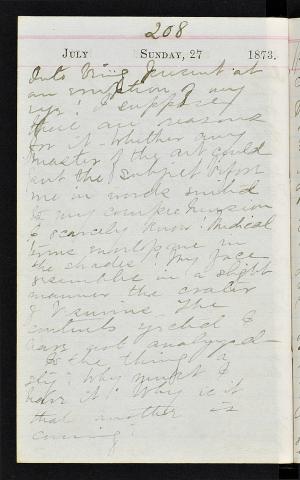 208
July Sunday, 27 1873.
an eruption of my
eye! I suppose
there are reasons
for it - whether any
master of the art could
put the subject before
me in words suited
to my comprehension
I scarcely know. Medical
terms envelope me in
the shades! My face
resembles in a slight
manner the crater
of Vesuvius. The
contents yielded I
have not analyzed -
Is the thing a
sty? Why must I
have it! Why is it
that another is
coming?